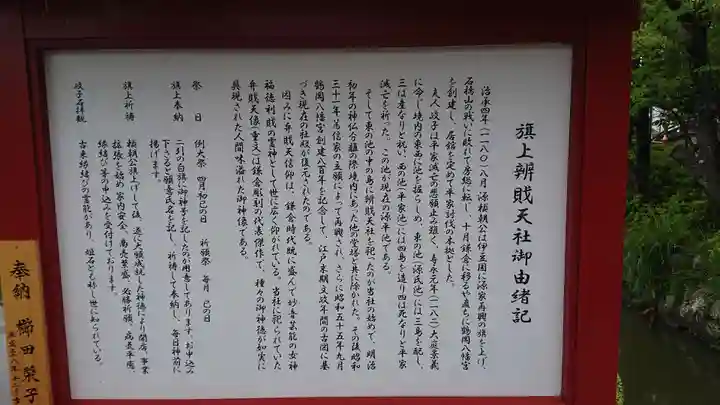 旗上辨財天社御由緒記
治承四年(一一八〇)八月源頼朝公は伊豆国に源家再興の旗を上げ、
石橋山の戦いに敗れて房総に転し、十月鎌倉に移るや直ちに鶴岡八幡宮
を創建し、居館を定めて平家討伐の本拠とした。
夫人政子は平家滅亡の悲願止み難く、寿永元年(一一八二)大庭景義
に命じ境内の東西に池を掘らしめ、東の池(源氏池)には三島を配し、
三は産なりと祝い、西の池(平家池)には四島を造り四は死なりと平家
滅亡を祈った。この池が現在の源平池である。
そして東の池の中の島に辨財天社を祀ったのが当社の始めて、明治
初年の神仏分離の際境内にあった他の堂塔と共に除かれた。その後昭和
三十一年篤信家の立願によって再興され、さらに昭和五十五年九月
鶴岡八幡宮創建八百年を記念して、江戸末期文政年間の古図に基
づき現在の社殿が復元されたのである。
因みに弁財天信仰は、鎌倉時代既に盛んで妙音芸能の女神
福徳利財の霊神として世に広く仰がれている。当社に祀られていた
弁財天像(重文)は鎌倉彫刻の代表傑作で、種々の御神徳が如実に
具現された人間味溢れた御神像である。
祭 日 例大祭 四月初巳の日 祈願祭 毎月 巳の日
旗上奉納 二引の白旗に御神号を記したのが用意してあります。お申込み
下さると願意氏名を記し、祈祷して奉納し、毎日神前に
掲げます。
旗上祈祷 頼朝公旗上げして後、遂に大願成就した神徳により開店、事業
拡張を始め家内安全、商売繁盛、必勝祈願、病気平癒、
縁結び等の申込みを受付けております。
政子石拝観 古来縁結びの霊能があり、姫石とも称し世に知られている。
奉納 櫛田榮子